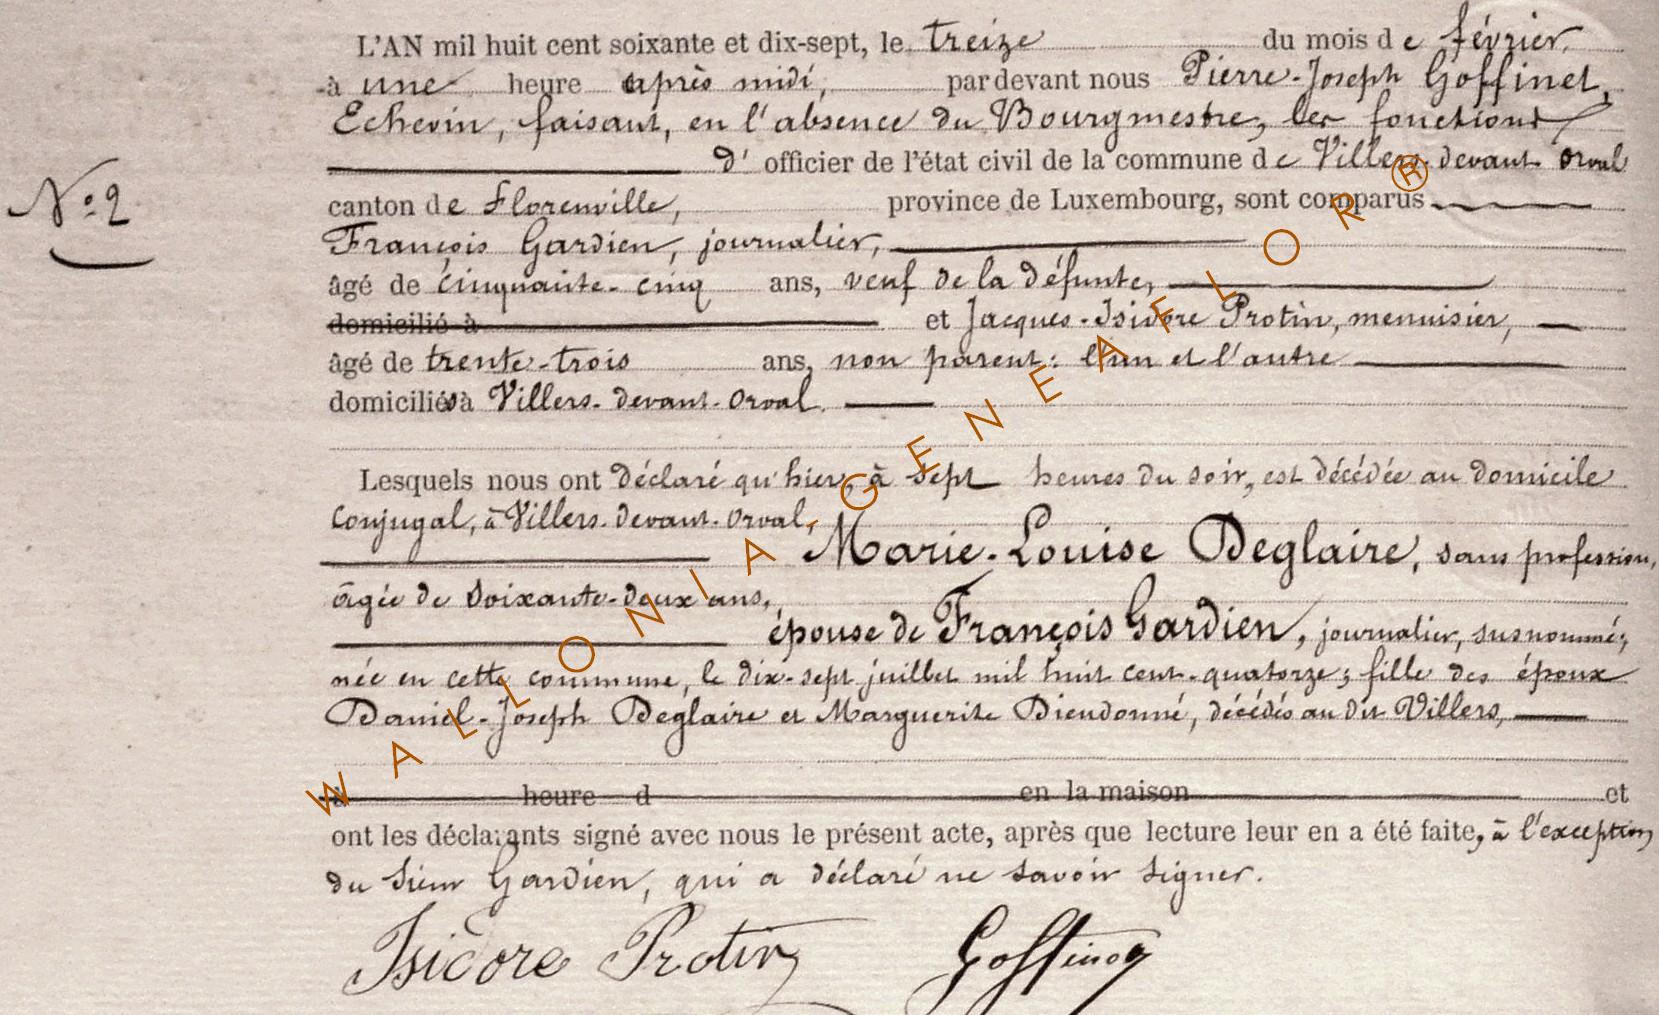 L'AN mil huit cent soixante et dix-sept, le treize du mois de février,
à une heure après midi, pardevant nous Pierre-Joseph Goffinet,
Echevin, faisant, en l'absence du Bourgmestre, les fonctions
d' officier de l'état civil de la commune de Villers-devant-Orval
N° 2
canton de Florenville, province de Luxembourg, sont comparus
François Gardien, journalier,
âgé de cinquante-cinq ans, veuf de la défunte,
domicilié à et Jacques-Isidore Protin, menuisier,
âgé de trente-trois ans, non parent: l'un et l'autre
domiciliés à Villers-devant-Orval.
Lesquels nous ont déclaré qu'hier, à sept heures du soir, est décédée au domicile
conjugal, à Villers-devant-Orval,
Marie-Louise Deglaire, sans profession,
âgée de soixante-deux ans,
épouse de François Gardien, journalier, susnommé;
née en cette commune, le dix-sept juillet mil huit cent-quatorze; fille des époux
Daniel-Joseph Deglaire et Marguerite Dieudonné, décédés au dit Villers,
à heure d en la maison et
ont les déclarants signé avec nous le présent acte, après que lecture leur en a été faite, à l'exception
du sieur Gardien, qui a déclaré ne savoir signer.
Isidore Protin Goffinet
WALLONIA-GENEAFLOR®